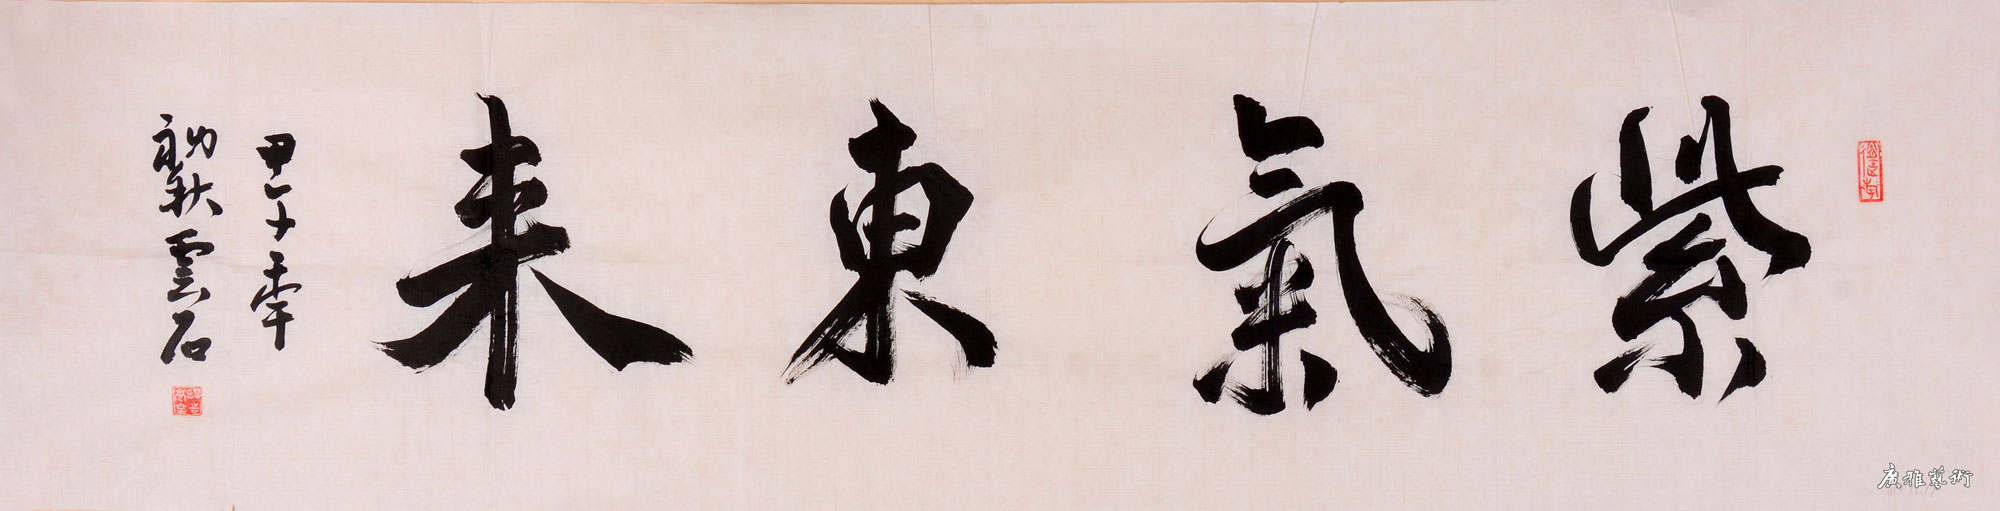 紫氣東来
甲午年
初秋雲石
廣雅藝術